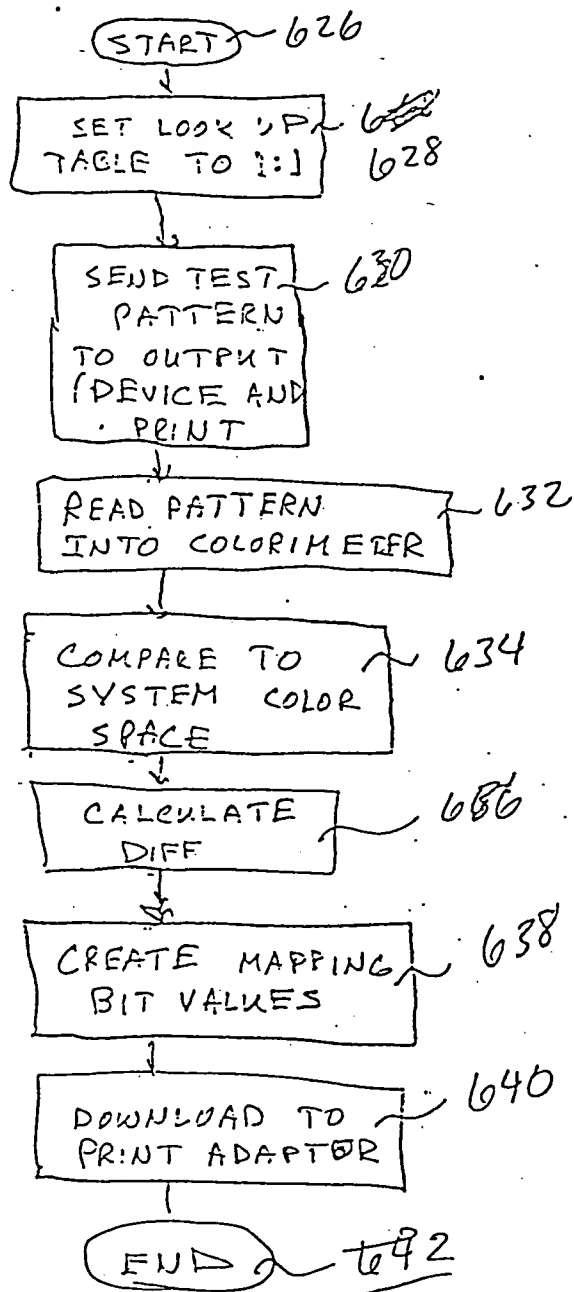 START 626
SET LOOK UP
TABLE TO 1:1 628
SEND TEST 630
PATTERN
TO OUTPUT
DEVICE AND
PRINT
READ PATTERN 632
INTO COLORIMETER
COMPARE TO 634
SYSTEM COLOR
SPACE
CALCULATE
DIFF
CREATE MAPPING 638
BIT VALUES
DOWNLOAD TO 640
PRINT ADAPTOR
END 642